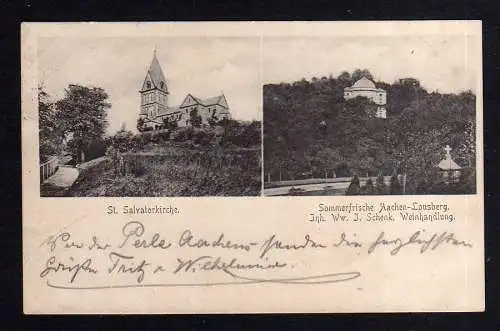 St. Salvatorkirche.
Sommerfrische Aachen-Lousberg.
Inh. Ww. J. Schenk, Weinhandlung.
Von der Perle Aachens senden die herzlichsten
Grüße Fritz u Wilhelmine.